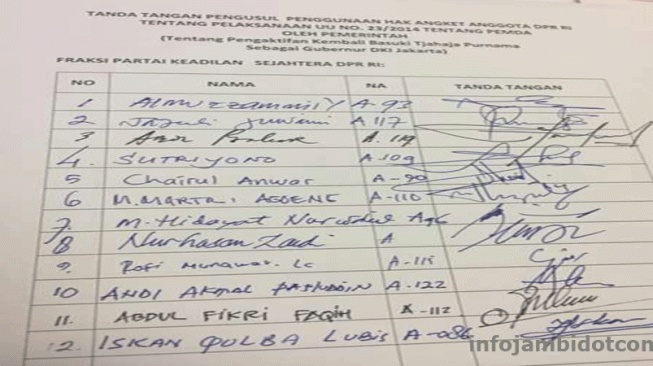 TANDA TANGAN PENGUSUL PENGGUNAAN HAK ANGKET ANGGOTA DPR RI
TENTANG PELAKSANAAN UU NO. 23/2014 TENTANG PEMDA
OLEH PEMERINTAH
(Tentang Pengaktifan Kembali Basuki Tjahaja Purnama
Sebagai Gubernur DKI Jakarta)
FRAKSI PARTAI KEADILAN SEJAHTERA DPR RI:
NO NAMA NA TANDA TANGAN
1 A-93
2 Jazuli Juwaini A-117
3 A. 119
4. SUTRIYONO A.109
5 Chairul Anwar A-90
6 M. MARTRI. AGOENG A-110
7. M. Hidayat Nur
8 Nurhasan Zaidi A
9. Rofi Munawar. Lc A-115
10 ANDI AKMAL PASLUDDIN A-122
11. ABDUL FIKRI FAQIH A-112
12. ISKAN QULBA LUBIS A-086
infojambidotcom